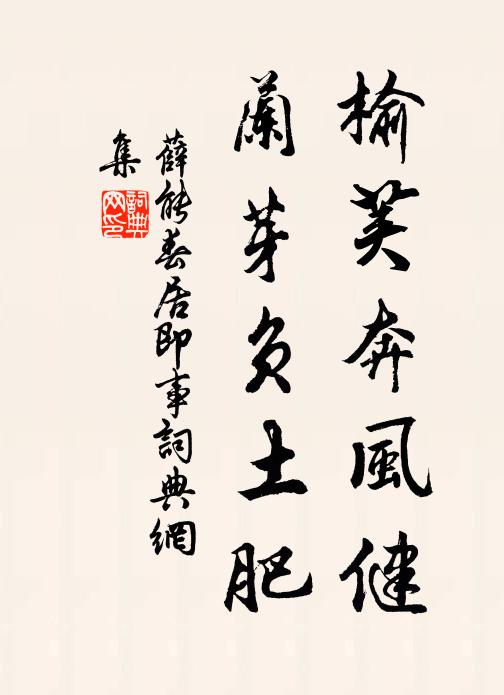 榆莢奔風健
蘭芽負土肥
薛能春居即事詞典網
集
詞典网印